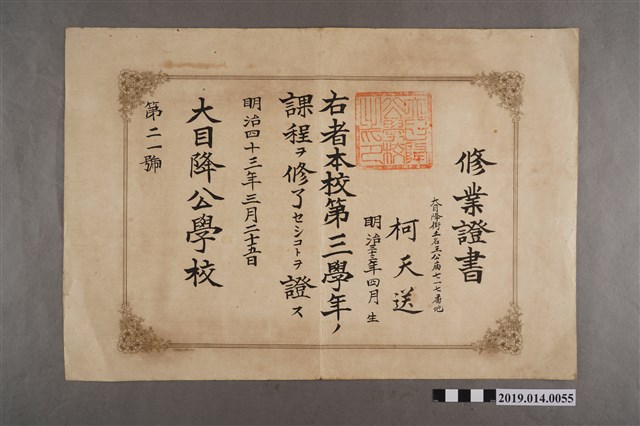 修業證書
大目降街土名王公廟七一七番地
柯天送
明治三十三年四月生
右者本校第三學年ノ
課程ヲ修了セシコトヲ證ス
明治四十三年三月二十五日
大目降公學校
第二一號
2019.014.0055